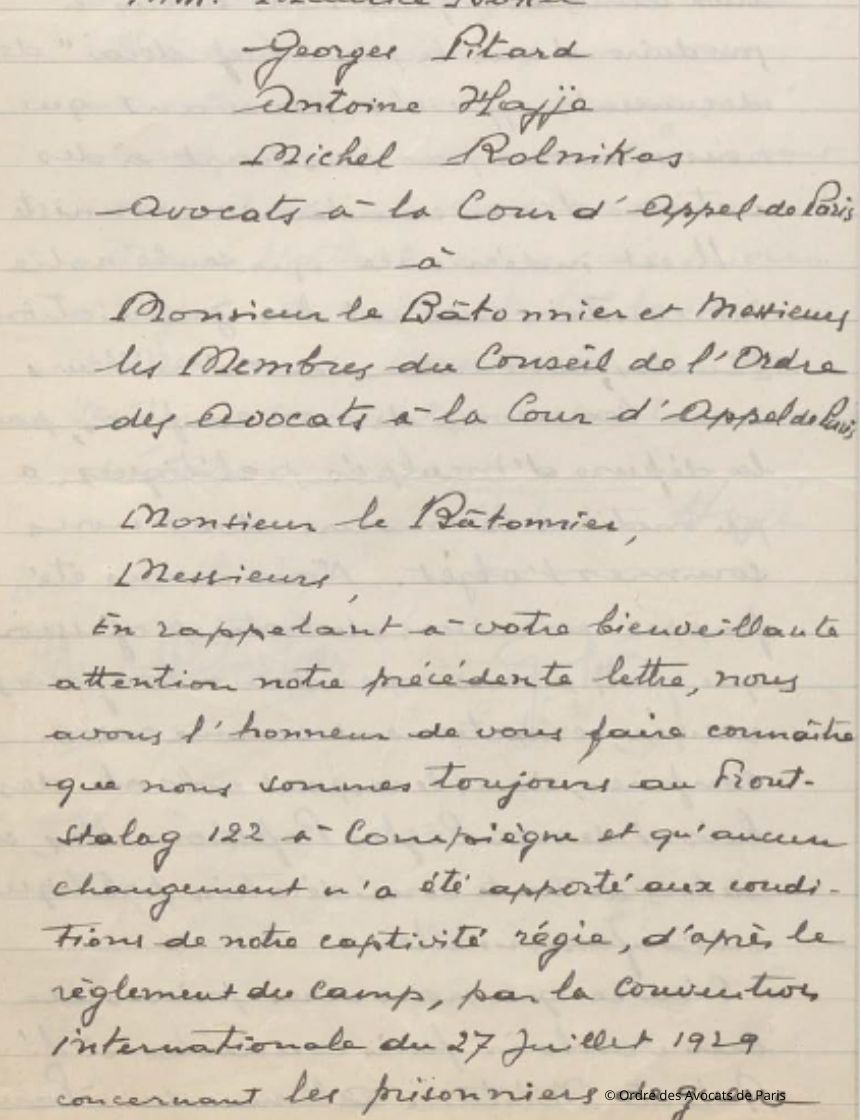 Georges Pitard
Antoine Hajje
Michel Rolnikas
Avocats à la Cour d'Appel de Paris
à
Monsieur le Bâtonnier et Messieurs
les Membres du Conseil de l'Ordre
des Avocats à la Cour d'Appel de Paris
Monsieur le Bâtonnier,
Messieurs,
En rappelant à votre bienveillante
attention notre précédente lettre, nous
avons l'honneur de vous faire connaître
que nous sommes toujours au Front-
Stalag 122 à Compiègne et qu'aucun
changement n'a été apporté aux condi-
tions de notre captivité régie, d'après le
règlement du camp, par la Convention
internationale du 27 Juillet 1929
concernant les prisonniers de
© Ordre des Avocats de Paris